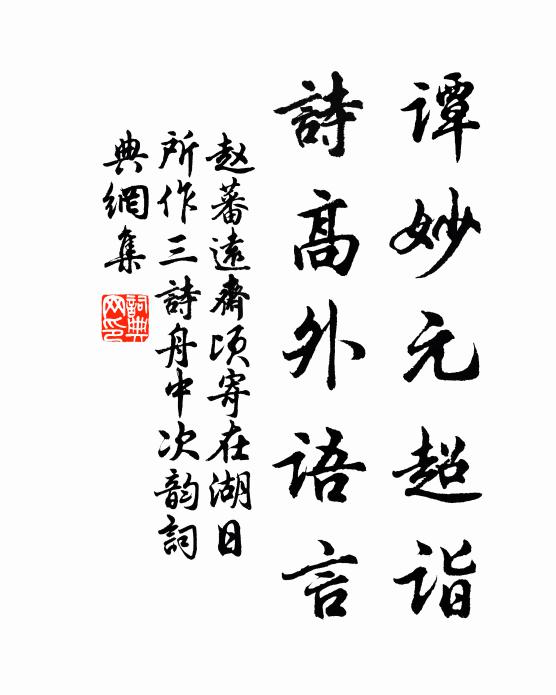 谭妙元超诣
詩高外語言
赵蕃遠齋頃寄在湖日
所作三詩舟中次韵詞
典網集
詞典网印